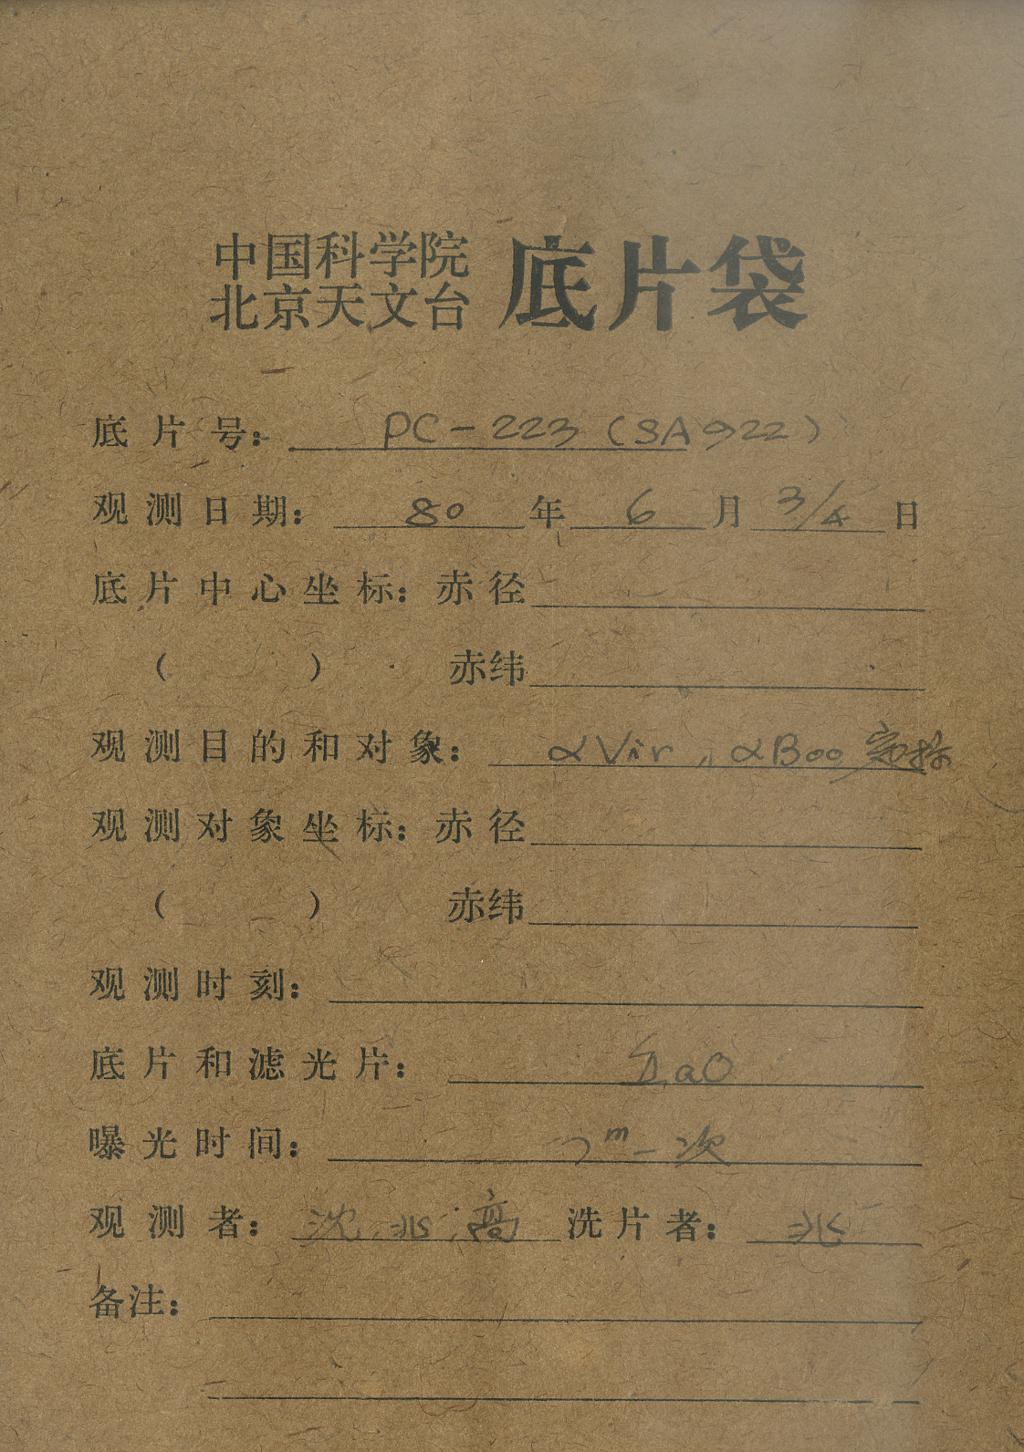 中国科学院
北京天文台
底片袋
底片号： PC-223 (SA922)
观测日期： 80 年 6 月 3/4 日
底片中心坐标：赤径
（　　） 赤纬
观测目的和对象： αVir, αBoo 定标
观测对象坐标：赤径
（　　） 赤纬
观测时刻：
底片和滤光片： IIaO
曝光时间： m一次
观测者： 沈, 兆, 高 洗片者： 兆
备注：